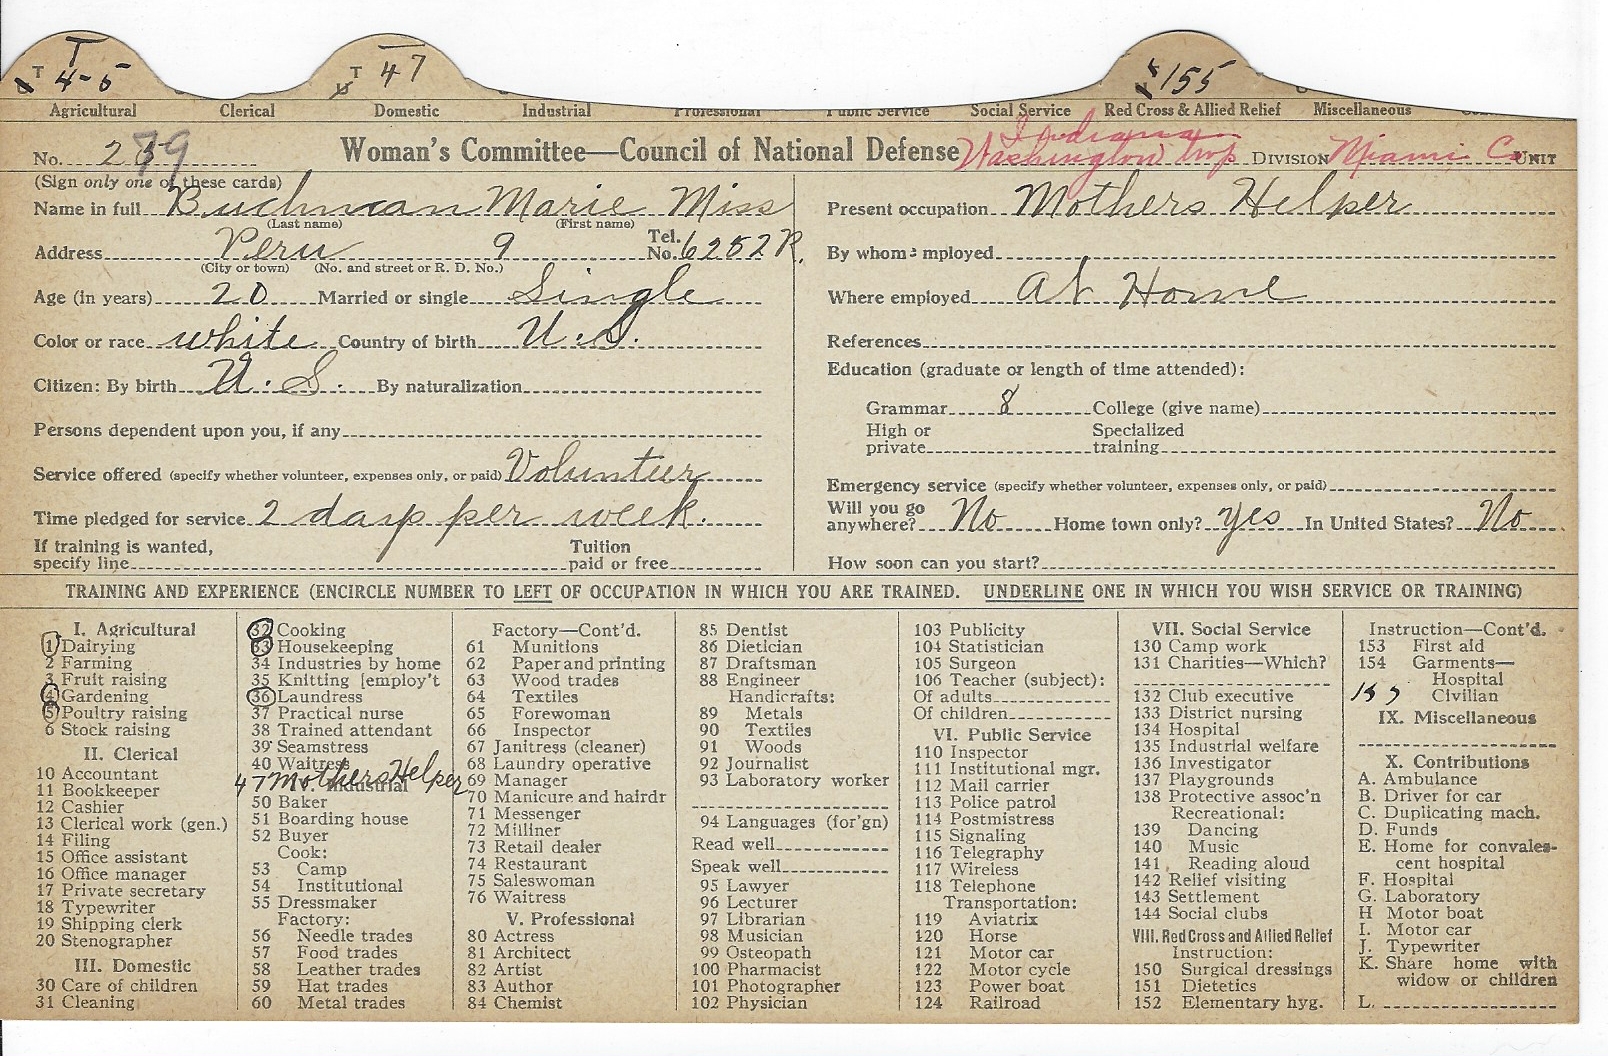 T T
T 4-5 T 47 155
Agricultural Clerical Domestic Industrial Professional Public Service Social Service Red Cross & Allied Relief Miscellaneous
Indiana
No. 239 Woman's Committee—Council of National Defense Washington twp DIVISION Miami Co UNIT
(Sign only one of these cards)
Name in full Buchman Marie Miss
(Last name) (First name)
Address Peru 9 Tel. No. 6252R.
(City or town) (No. and street or R. D. No.)
Age (in years) 20 Married or single Single
Color or race white Country of birth U.S.
Citizen: By birth U.S. By naturalization
Persons dependent upon you, if any
Service offered (specify whether volunteer, expenses only, or paid) Volunteer
Time pledged for service 2 days per week.
If training is wanted, Tuition
specify line paid or free
Present occupation Mothers Helper
By whom employed
Where employed At Home
References
Education (graduate or length of time attended):
Grammar 8 College (give name)
High or Specialized
private training
Emergency service (specify whether volunteer, expenses only, or paid)
Will you go
anywhere? No Home town only? yes In United States? No
How soon can you start?
TRAINING AND EXPERIENCE (ENCIRCLE NUMBER TO LEFT OF OCCUPATION IN WHICH YOU ARE TRAINED. UNDERLINE ONE IN WHICH YOU WISH SERVICE OR TRAINING)
I. Agricultural
1 Dairying
2 Farming
3 Fruit raising
4 Gardening
5 Poultry raising
6 Stock raising
II. Clerical
10 Accountant
11 Bookkeeper
12 Cashier
13 Clerical work (gen.)
14 Filing
15 Office assistant
16 Office manager
17 Private secretary
18 Typewriter
19 Shipping clerk
20 Stenographer
III. Domestic
30 Care of children
31 Cleaning
32 Cooking
33 Housekeeping
34 Industries by home
35 Knitting [employ't
36 Laundress
37 Practical nurse
38 Trained attendant
39 Seamstress
40 Waitress
47 Mothers Helper
Industrial
50 Baker
51 Boarding house
52 Buyer
Cook:
53 Camp
54 Institutional
55 Dressmaker
Factory:
56 Needle trades
57 Food trades
58 Leather trades
59 Hat trades
60 Metal trades
Factory—Cont'd.
61 Munitions
62 Paper and printing
63 Wood trades
64 Textiles
65 Forewoman
66 Inspector
67 Janitress (cleaner)
68 Laundry operative
69 Manager
70 Manicure and hairdr
71 Messenger
72 Milliner
73 Retail dealer
74 Restaurant
75 Saleswoman
76 Waitress
V. Professional
80 Actress
81 Architect
82 Artist
83 Author
84 Chemist
85 Dentist
86 Dietician
87 Draftsman
88 Engineer
Handicrafts:
89 Metals
90 Textiles
91 Woods
92 Journalist
93 Laboratory worker
94 Languages (for'gn)
Read well
Speak well
95 Lawyer
96 Lecturer
97 Librarian
98 Musician
99 Osteopath
100 Pharmacist
101 Photographer
102 Physician
103 Publicity
104 Statistician
105 Surgeon
106 Teacher (subject):
Of adults
Of children
VI. Public Service
110 Inspector
111 Institutional mgr.
112 Mail carrier
113 Police patrol
114 Postmistress
115 Signaling
116 Telegraphy
117 Wireless
118 Telephone
Transportation:
119 Aviatrix
120 Horse
121 Motor car
122 Motor cycle
123 Power boat
124 Railroad
VII. Social Service
130 Camp work
131 Charities—Which?
132 Club executive
133 District nursing
134 Hospital
135 Industrial welfare
136 Investigator
137 Playgrounds
138 Protective assoc'n
Recreational:
139 Dancing
140 Music
141 Reading aloud
142 Relief visiting
143 Settlement
144 Social clubs
VIII. Red Cross and Allied Relief
Instruction:
150 Surgical dressings
151 Dietetics
152 Elementary hyg.
Instruction—Cont'd.
153 First aid
154 Garments—
Hospital
155 Civilian
IX. Miscellaneous
X. Contributions
A. Ambulance
B. Driver for car
C. Duplicating mach.
D. Funds
E. Home for convales-
cent hospital
F. Hospital
G. Laboratory
H Motor boat
I. Motor car
J. Typewriter
K. Share home with
widow or children
L.